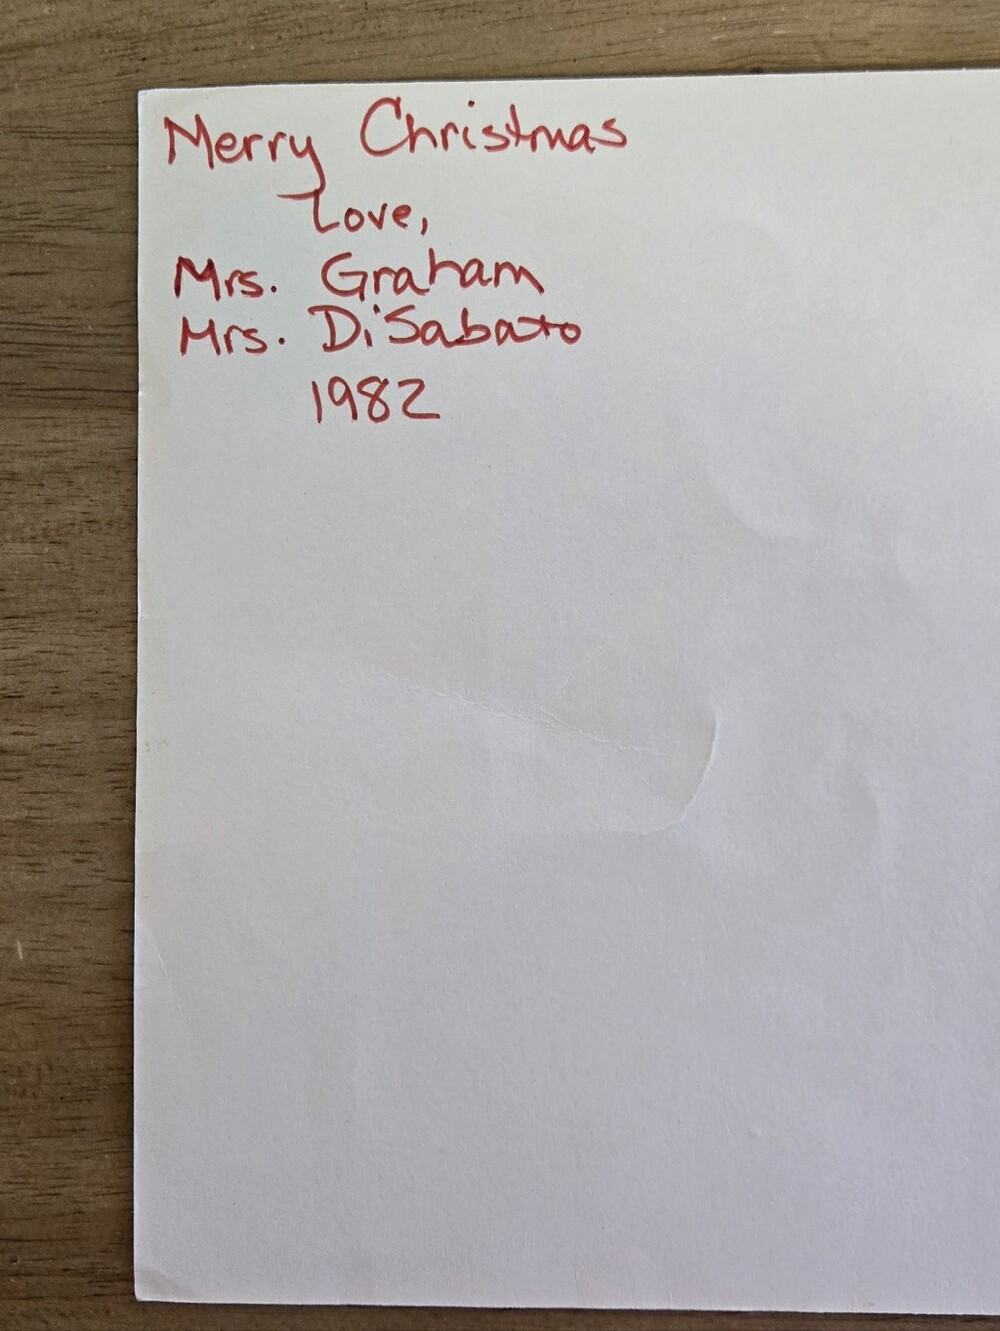 Merry Christmas
Love,
Mrs. Graham
Mrs. DiSabato
1982